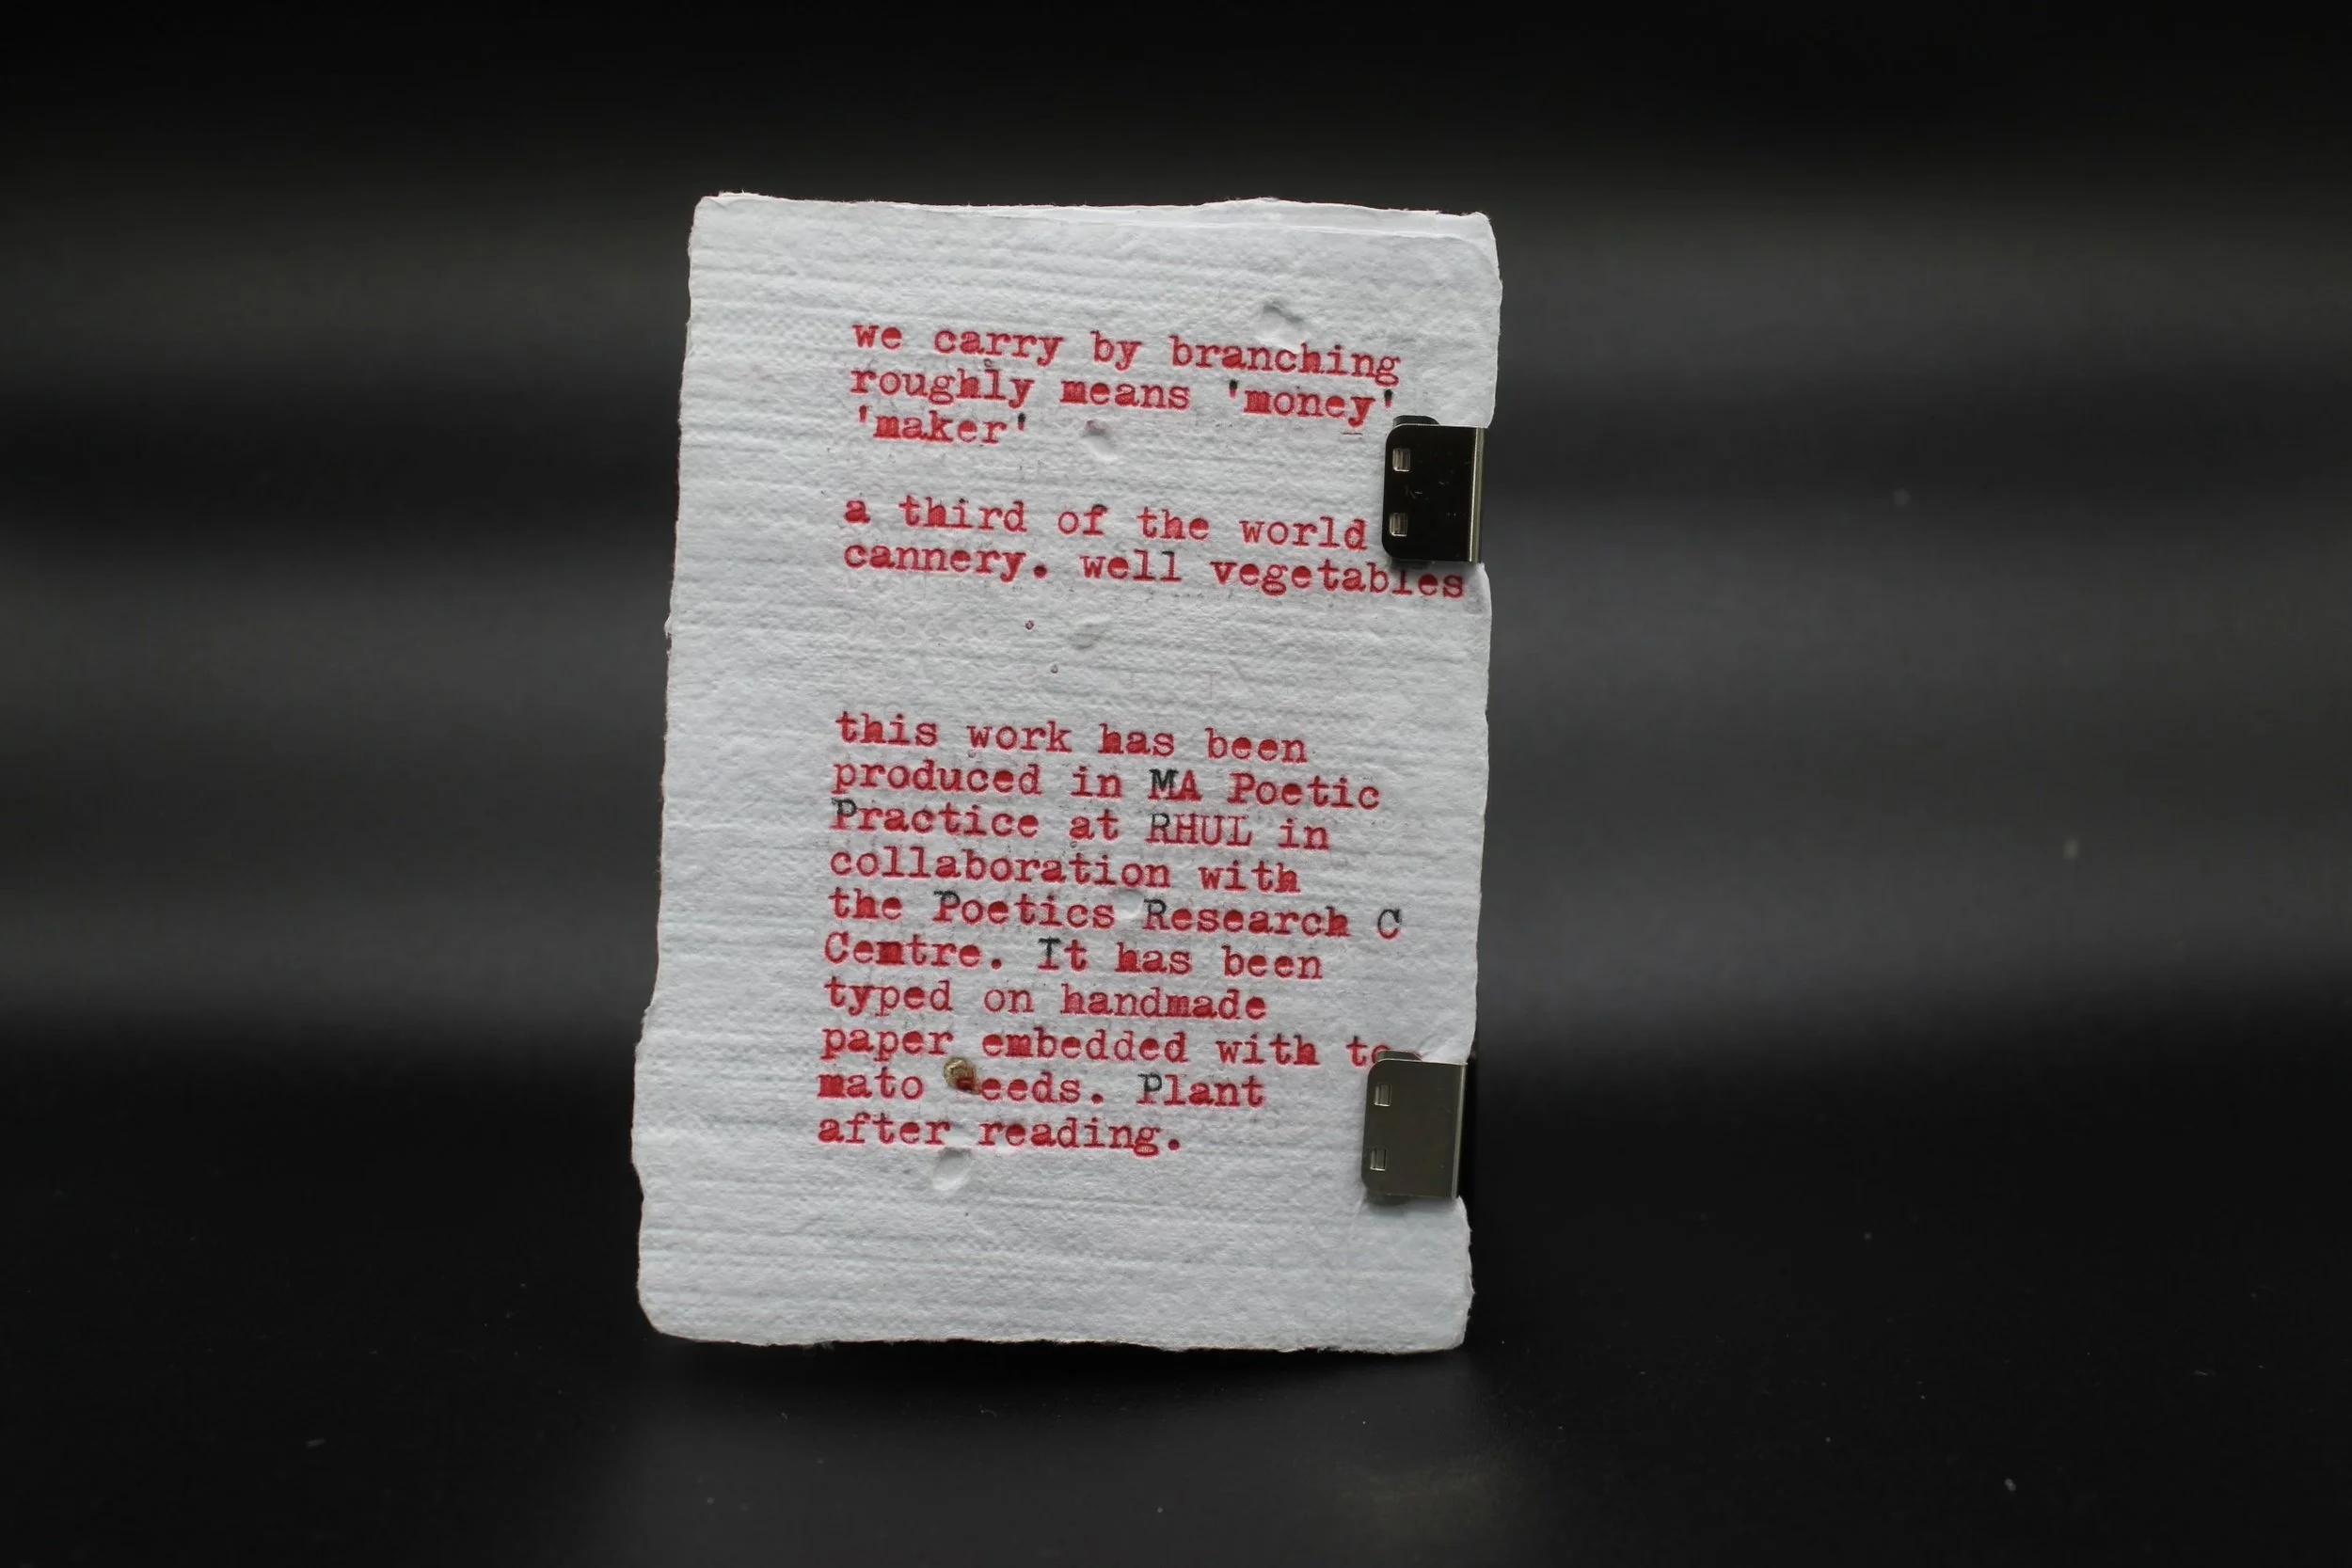 we carry by branching
roughly means 'money'
'maker'
a third of the world
cannery. well vegetables
this work has been
produced in MA Poetic
Practice at RHUL in
collaboration with
the Poetics Research C
Centre. It has been
typed on handmade
paper embedded with to
mato seeds. Plant
after reading.